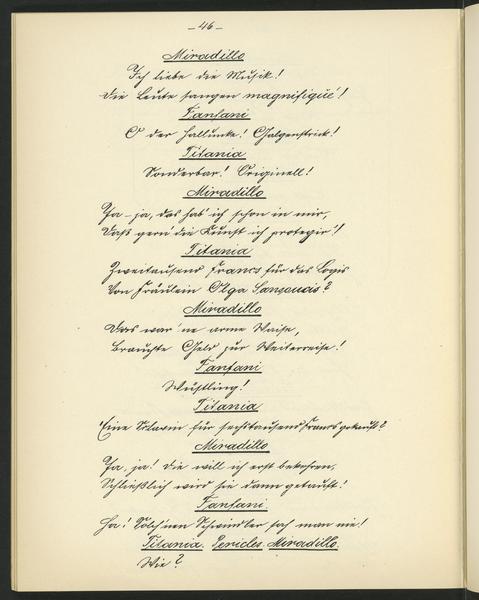 – 46 –
Miradillo
Ich liebe die Musik!
Die Leute sangen magnifique!
Fanfani
O der Hallunke! Galgenstrick!
Titania
Sonderbar! Originell!
Miradillo
Ja – ja, das hab' ich schon in mir,
Daß gern die Kunst ich protegir'!
Titania
Zweitausend Francs für das Logis
Von Fräulein Olga Sansoucis?
Miradillo
Das war 'ne arme Waise,
Brauchte Geld zur Weiterreise!
Fanfani
Wüstling!
Titania
Eine Sclavin für sechstausend Francs gekauft?
Miradillo
Ja, ja! Die will ich erst bekehren,
Schließlich wird sie dann getauft!
Fanfani
Ha! Solch'nen Schwindler sah man nie!
Titania. Pericles. Miradillo.
Wie?